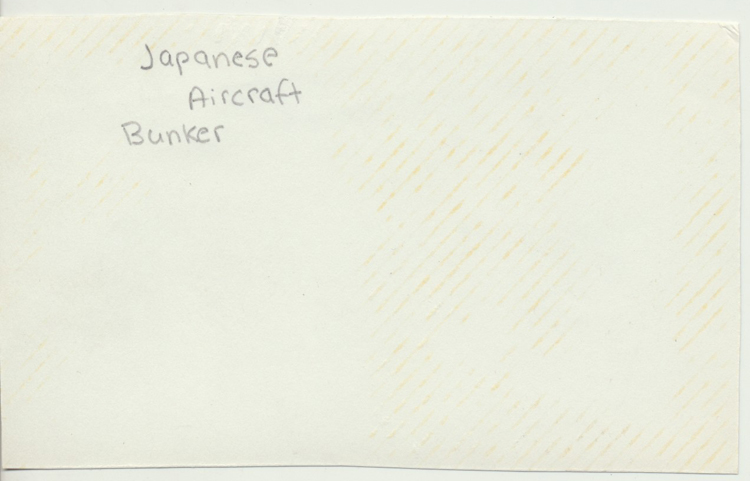 Japanese
Aircraft
Bunker